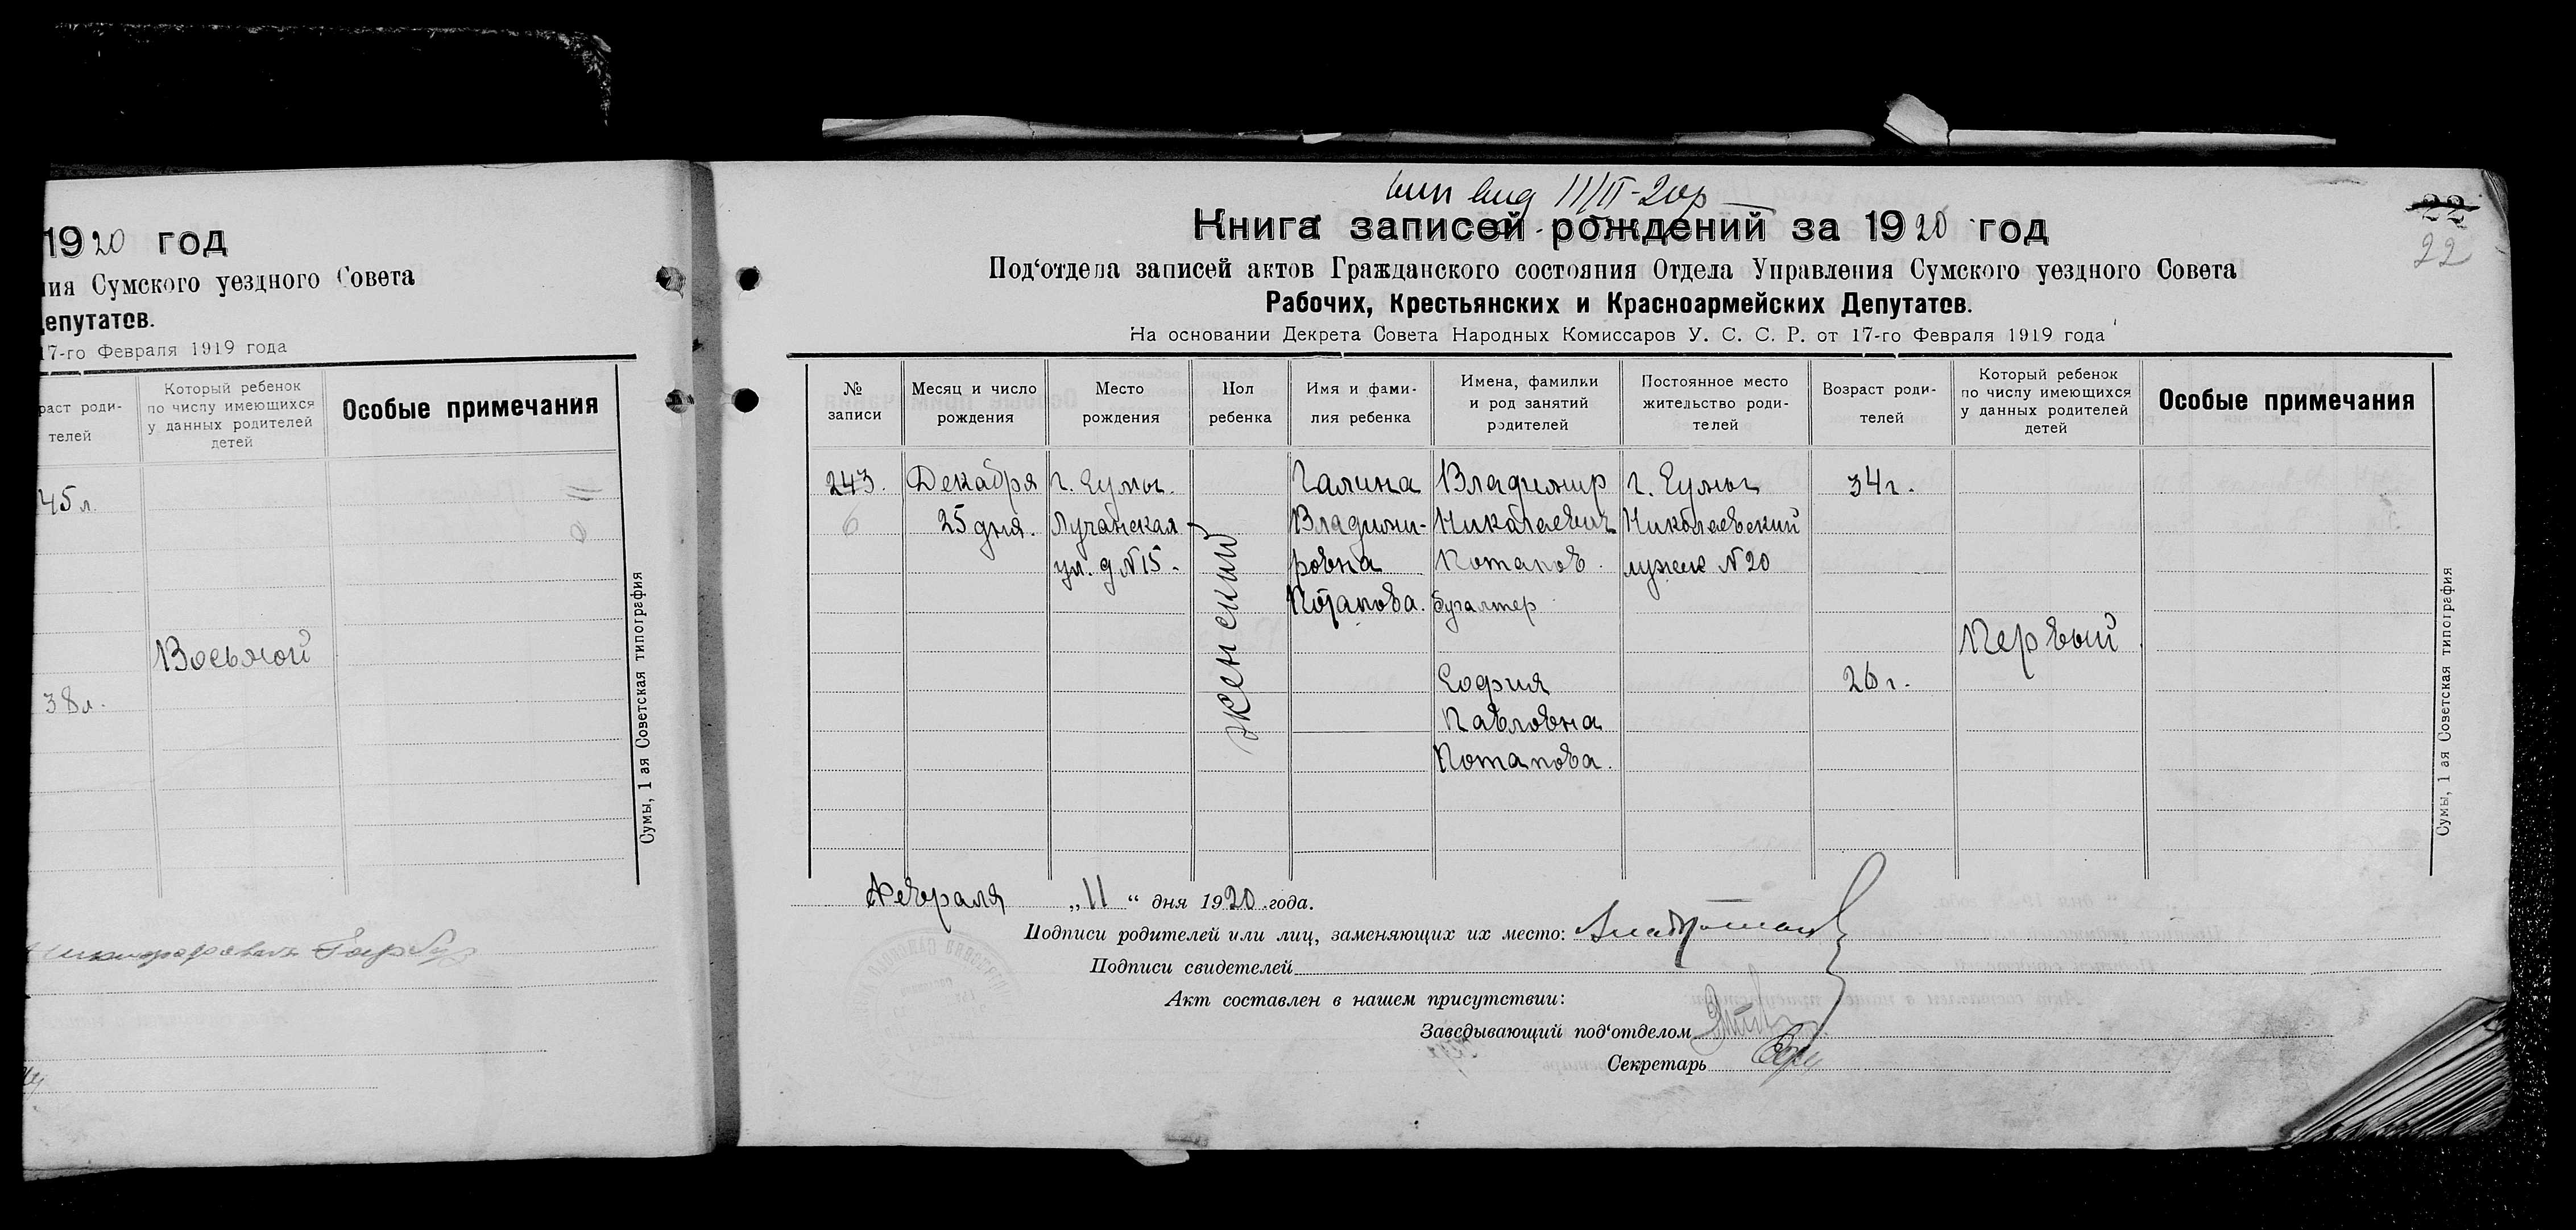 1920 год
ния Сумского уездного Совета
Депутатов.
17-го Февраля 1919 года
раст роди-
телей
Который ребенок
по числу имеющихся
у данных родителей
детей
Особые примечания
45 л.
Восьмой
38 л.
Сумы, 1 ая Советская типография
11/II-20
22
22
Книга записей рождений за 1920 год
Под‘отдела записей актов Гражданского состояния Отдела Управления Сумского уездного Совета
Рабочих, Крестьянских и Красноармейских Депутатов.
На основании Декрета Совета Народных Комиссаров У. С. С. Р. от 17-го Февраля 1919 года
№
записи
Месяц и число
рождения
Место
рождения
Пол
ребенка
Имя и фами-
лия ребенка
Имена, фамилии
и род занятий
родителей
Постоянное место
жительство роди-
телей
Возраст роди-
телей
Который ребенок
по числу имеющихся
у данных родителей
детей
Особые примечания
243.
6
Декабря
25 дня.
г. Сумы.
Лучанская
ул. д № 15.
женский
Галина
Владими-
ровна
Потапова.
Владимир
Николаевич
Потапов.
бугалтер
София
Павловна
Потапова.
г. Сумы
Николаевский
лужек № 20
34 г.
26 г.
Первый
Сумы, 1 ая Советская типография
Февраля „11“ дня 1920 года.
Подписи родителей или лиц, заменяющих их место:
Подписи свидетелей
Акт составлен в нашем присутствии:
Заведывающий под‘отделом
Секретарь